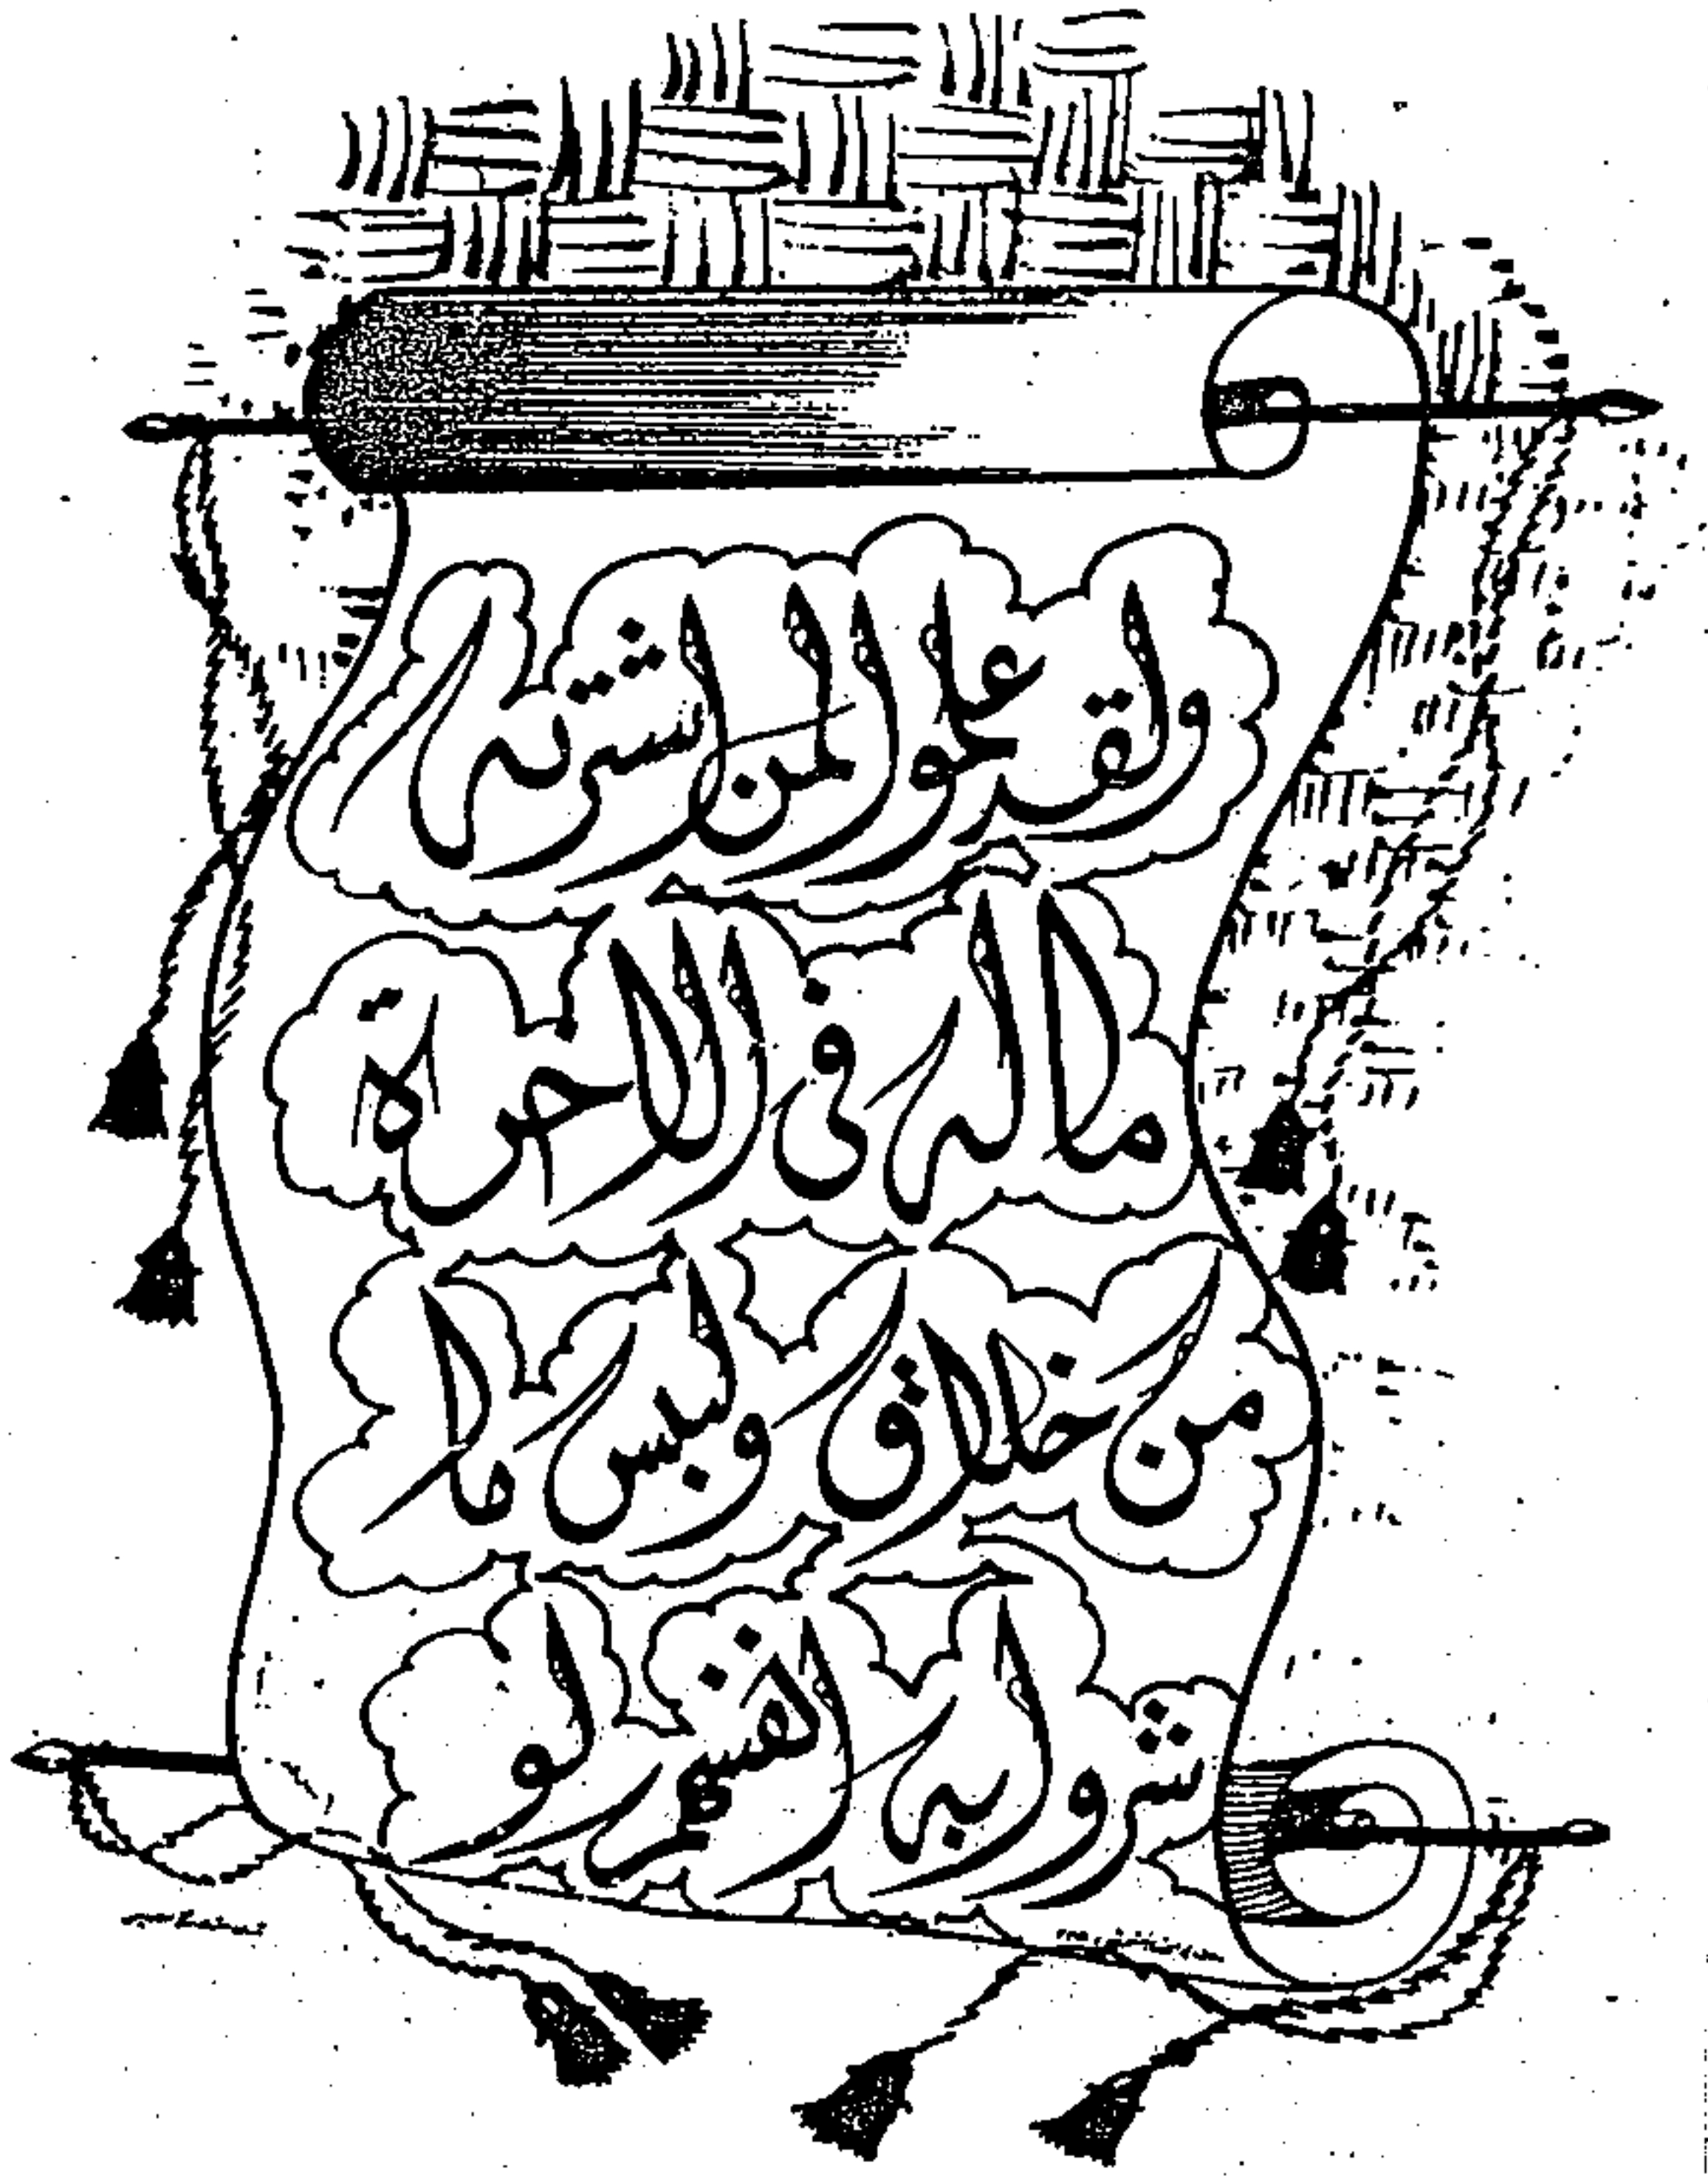 ولقد علموا لمن اشتريه
ما له في الاخرة
من خلاق ولبئس ما
شروا به انفسهم لو